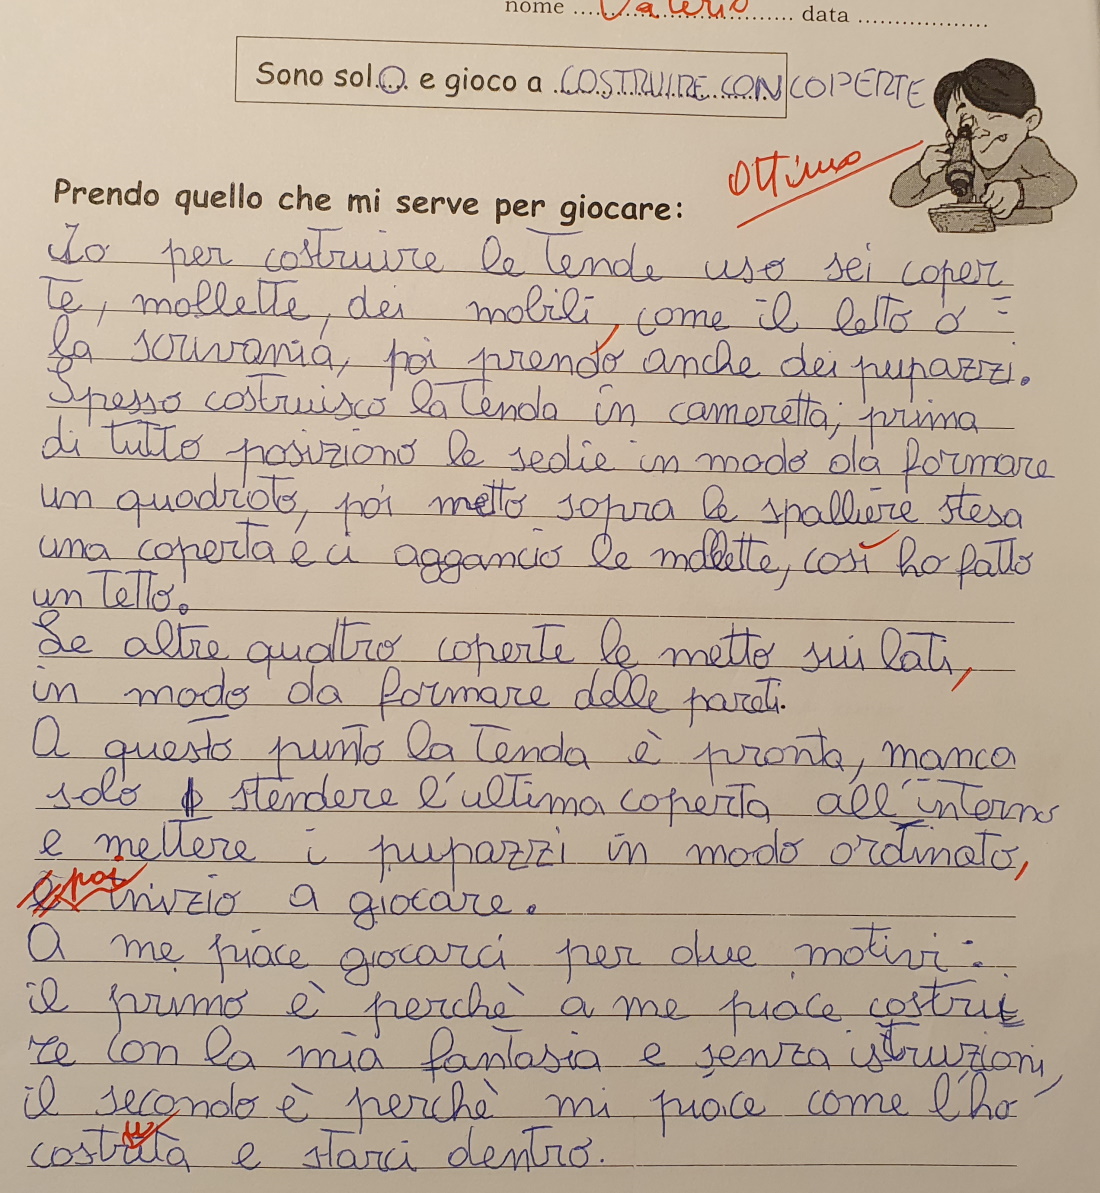 nome Valerio data
Sono solo e gioco a COSTRUIRE CON COPERTE
Ottimo
Prendo quello che mi serve per giocare:
Io per costruire le tende uso sei coper
te, mollette, dei mobili, come il letto o =
la scrivania, poi prendo anche dei pupazzi.
Spesso costruisco la tenda in cameretta; prima
di tutto posiziono le sedie in modo da formare
un quadrato, poi metto sopra le spalliere stesa
una coperta e ci aggancio le mollette, così ho fatto
un tetto.
Le altre quattro coperte le metto sui lati,
in modo da formare delle pareti.
A questo punto la tenda è pronta, manca
solo stendere l'ultima coperta all'interno
e mettere i pupazzi in modo ordinato,
poi inizio a giocare.
A me piace giocarci per due motivi:
il primo è perchè a me piace costrui
re con la mia fantasia e senza istruzioni,
il secondo è perchè mi piace come l'ho
costruita e starci dentro.